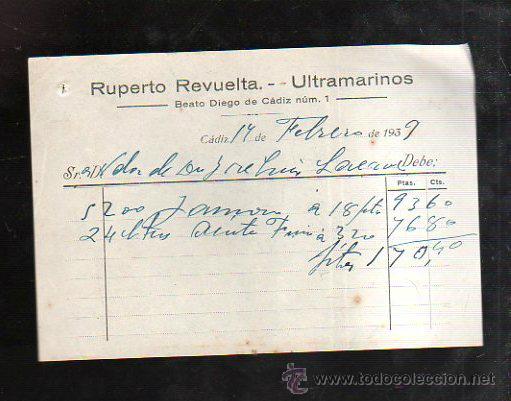 Ruperto Revuelta. -- Ultramarinos
Beato Diego de Cádiz núm. 1
Cádiz 14 de Febrero de 1939
Sr. de Debe:
Ptas. Cts.
5200 Jamon, á 18 pts 93 60
24 Aceite Fino á 320 76 80
ptas 170,40
todocoleccion
www.todocoleccion.net